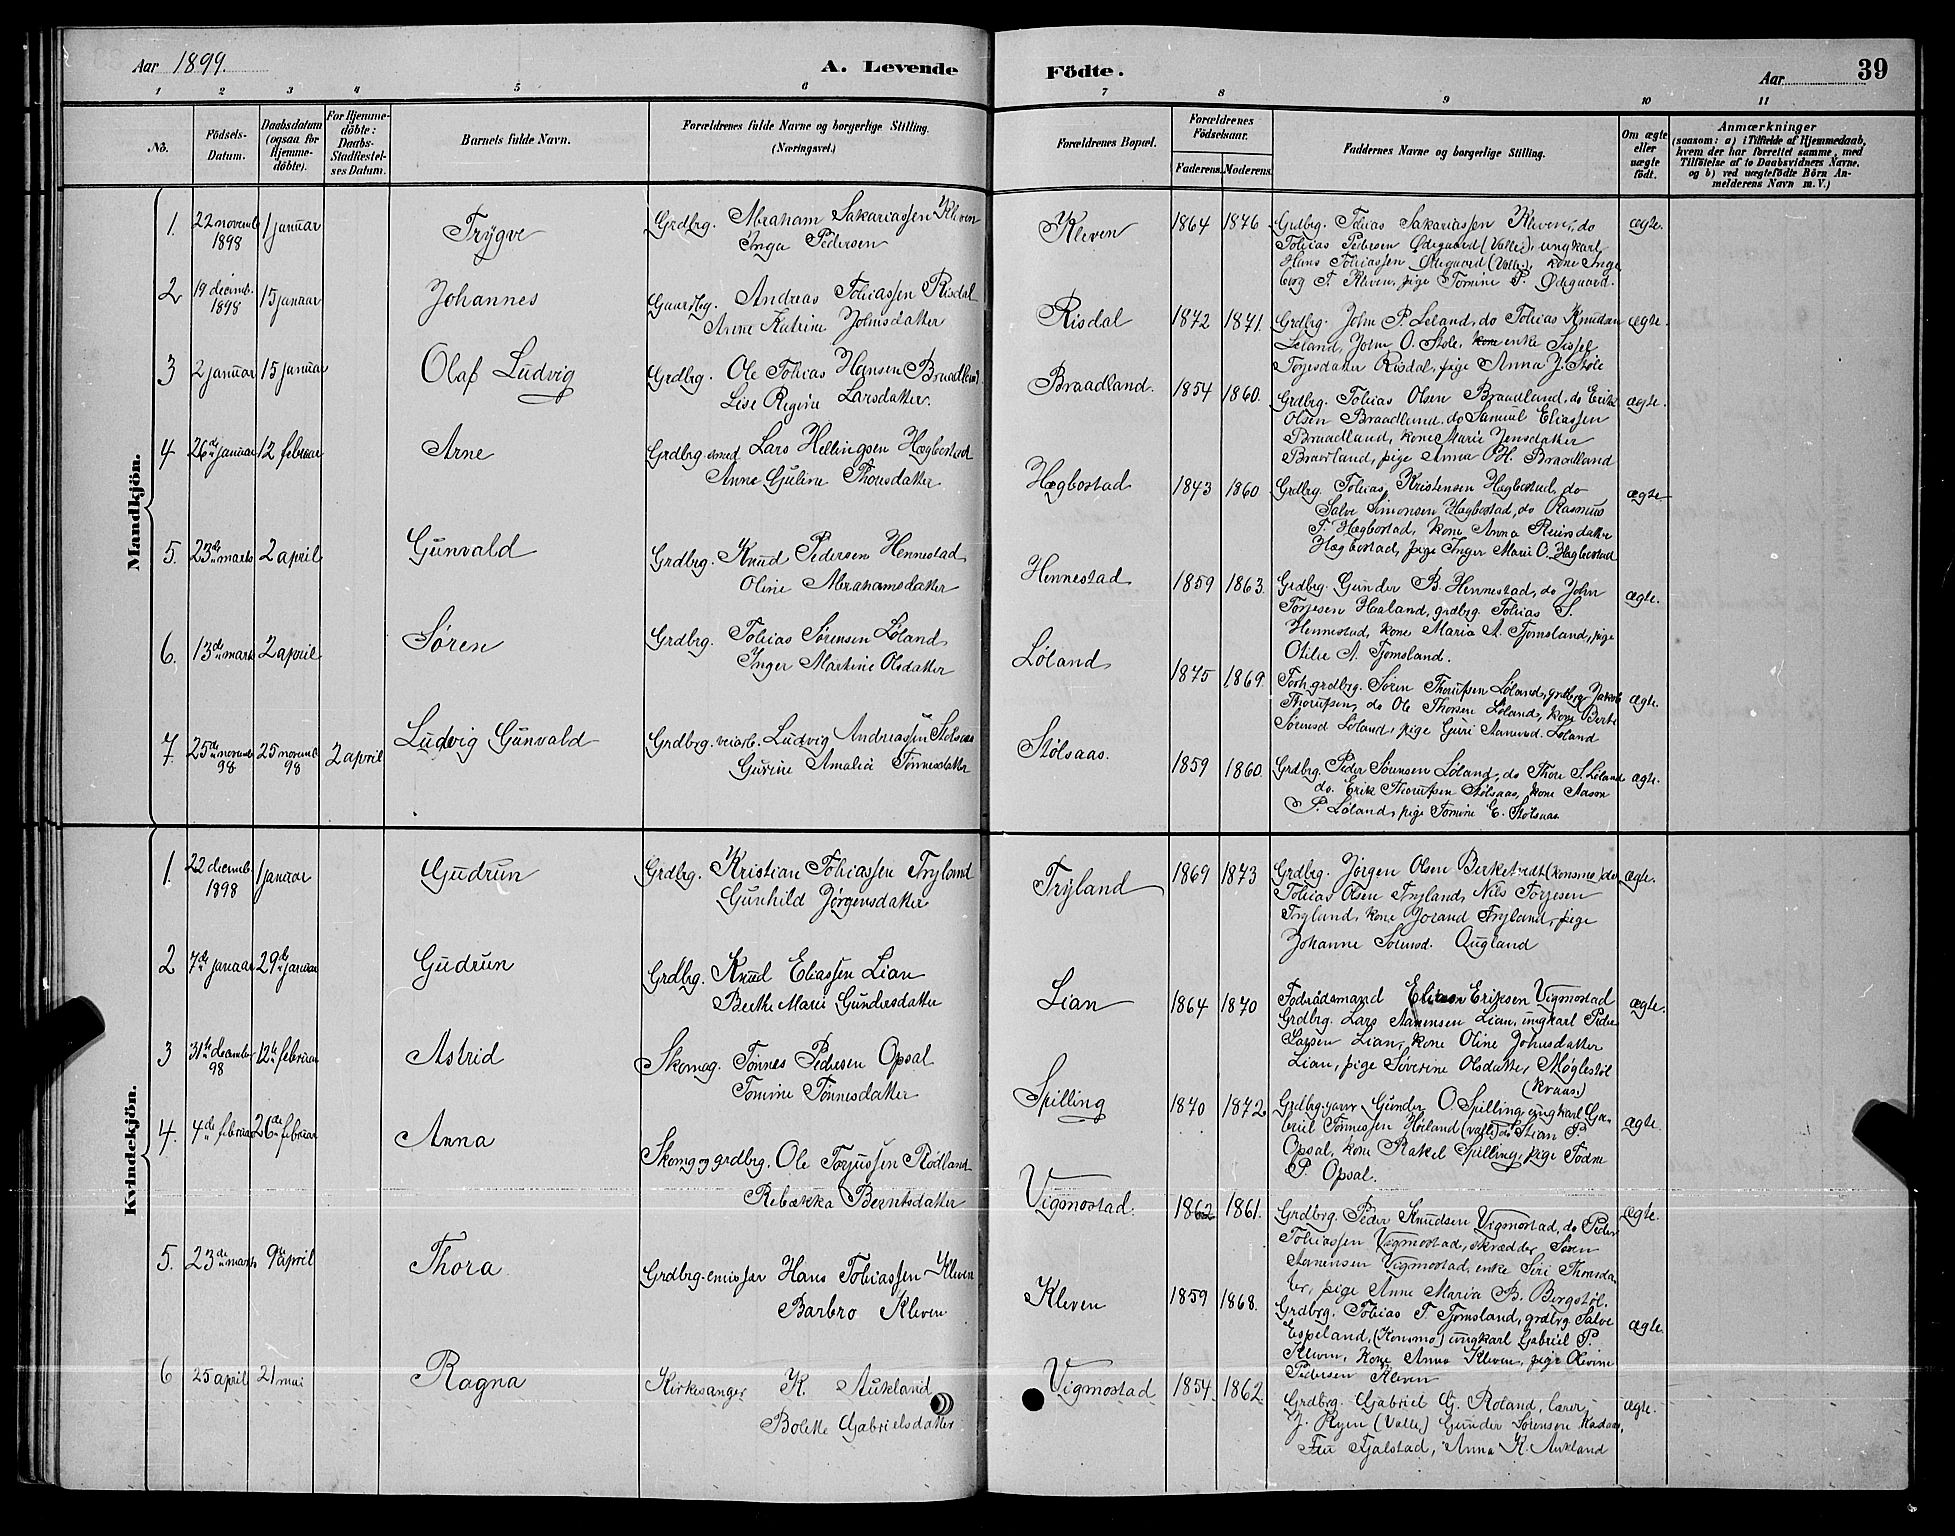 Aar 1899.
A. Levende
Födte.
Aar
39
1 2 3 4 5 6 7 8 9 10 11
No.
Födsels-
Datum.
Daabsdatum
(ogsaa for
Hjemme-
döbte).
For Hjemme-
döbte:
Daabs-
Stadfæstel-
ses Datum.
Barnets fulde Navn.
Forældrenes fulde Navne og borgerlige Stilling.
(Næringsvei.)
Forældrenes Bopæl.
Forældrenes
Födselsaar.
Faderens. Moderens.
Faddernes Navne og borgerlige Stilling.
Om ægte
eller
uægte
født.
Anmærkninger
(saasom: a) i Tilfælde af Hjemmedaab,
hvem der har forrettet samme, med
Tilföielse af to Daabsvidners Navne,
og b) ved uægtefödte Börn An-
melderens Navn m. V.)
Mandkjön.
1. 22 novemb 1898 1 januar Trygve
Grdbrg. Abraham Sakariassen Kleven
Inga Pedersen
Kleven 1864 1876
Grdbrg. Tobias Sakariassen Kleven, do
Tobias Pedersen Ødegaard (Valle), ungkarl
Hans Tobiassen Ødegaard (Valle), kone Inge
borg T. Kleven, pige Tomine P. Ødegaard.
ægte.
2 19 decemb. 1898 15 januar Johannes
Gaardbrg. Andreas Tobiassen Risdal
Anne Katrine Johnsdatter
Risdal 1872 1871.
Grdbrg. John P. Leland, do Tobias Knudsen
Leland, John O. Støle, kone enke Sissel
Torjesdatter Risdal, pige Anna J. Støle
ægte.
3 2 januar 15 januar Olaf Ludvig
Grdbrg. Ole Tobias Hansen Braadland
Lise Regine Larsdatter.
Braadland. 1854 1860.
Grdbrg. Tobias Olsen Braadland, do Erik
Olsen Braadland, do Samuel Eliassen
Braadland, kone Marie Jensdatter
Braadland, pige Anna O. H. Braadland
ægte.
4 26de januar 12 februar Arne
Grdbrg. smed Lars Hellingsen Hægbostad
Anne Guline Thorsdatter
Hægbostad 1843 1860
Grdbrg. Tobias Kristensen Hægbostad, do
Salve Simonsen Hægbostad, do Rasmus
T. Hægbostad, kone Anna Reiersdatter
Hægbostad, pige Inger Marie O. Hægbostad
ægte
5. 23de marts 2 april Gunvald
Grdbrg. Knud Pedersen Hennestad
Oline Abrahamsdatter
Hennestad 1859 1863.
Grdbrg. Gunder B. Hennestad, do John
Torjesen Haaland, grdbrg. Tobias S.
Hennestad, kone Maria A. Tjomsland, pige
Otilie A. Tjomsland.
ægte.
6. 13de marts 2 april Søren
Grdbrg. Tobias Sørensen Løland
Inger Martine Olsdatter
Løland 1875 1869.
Forh. grdbrg. Søren Thorufsen Løland, grdbrg. Jakob
Thorufsen, do Ole Thorsen Løland, kone Berte
Sørensd Løland, pige Guri Aanensd. Løland
ægte.
7. 25de novemb 98 25 novemb 98 2 april Ludvig Gunvald
Grdbrg. veiarb. Ludvig Andreassen Stølsaas
Gurine Amalie Tønnesdatter
Stølsaas. 1859 1860
Grdbrg. Peder Sørensen Løland, do Thore S. Løland
do. Erik Thorufsen Stølsaas, kone Aason
P. Løland, pige Tomine E. Stølsaas
ægte.
Kvindekjön.
1. 22 decemb 1898 1 januar Gudrun
Grdbrg. Kristian Tobiassen Tryland
Gunhild Jørgensdatter
Tryland 1869 1873
Grdbrg. Jørgen Olsen Birketvedt (konsmo) do
Tobias Olsen Tryland, Nils Torjesen
Tryland, kone Jorand Tryland, pige
Johanne Sørensd. Øugland
ægte.
2 7de januar 29de januar Gudrun
Grdbrg. Knud Eliassen Lian
Berthe Marie Gundersdatter
Lian 1864 1870
Føderådsmand Elias Eriksen Vigmostad
Grdbrg. Lars Aanensen Lian, ungkarl Peder
Larsen Lian, kone Oline Johnsdatter
Lian, pige Søverine Olsdatter, Møglestøl
(kvaas)
ægte.
3 31te decemb 98 12te februar Astrid
Skomag. Tønnes Pedersen Opsal
Tomine Tønnesdatter
Spilling 1870 1872
Grdbrg. garv Gunder O. Spilling, ungkarl Ga-
briel Tønnessen Høiland (valle) do Stian P.
Opsal, kone Rakel Spilling, pige Todne
P. Opsal.
ægte.
4. 4de februar 26de februar Anna
Skomg og grdbrg. Ole Torjussen Rødland
Rebækka Berntsdatter
Vigmostad. 1862 1861.
Grdbrg. Peder Knudsen Vigmostad, do Peder
Tobiassen Vigmostad, skrædder Søren
Aanensen Vigmostad, enke Siri Thorsdat
ter, pige Anne Maria B. Bergstøl.
ægte.
5. 23de marts 9de april Thora
Grdbrg. emissær Hans Tobiassen Kleven
Barbro Kleven
Kleven 1859 1868.
Grdbrg. Tobias T. Tjomsland, grdbrg Salve
Espeland, (Konsmo) ungkarl Gabriel P.
Kleven, kone Anna Kleven, pige Olevine
Pedersen Kleven
ægte.
6 25 april 21 mai Ragna
Kirkesanger K. Aukland
Bolette Gabrielsdatter
Vigmostad 1854. 1862.
Grdbrg. Gabriel G. Roland, lærer
J. Ryen (Valle) Gunder Sørensen Kadaas,
Fru Fjalstad, Anna K. Aukland
ægte.